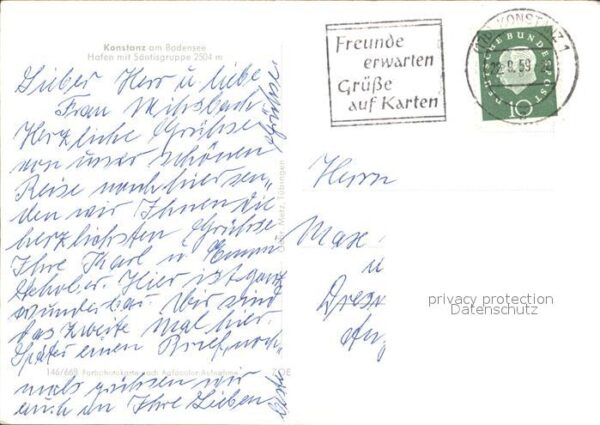 Konstanz am Bodensee
Hafen mit Säntisgruppe 2504 m
Lieber Herr u. liebe
Frau
Herzliche Grühse
von unser schönen
Reise nach hier sen„
den wir Ihnen die
herzlichsten Grühse
Ihre Karl u. Emmi
Schober. Hier ist ganz
wunderbar. Wir sind
das zweite Mal hier.
Später einen Brief, noch„
mals grühsen wir
auch an Ihre Lieben
Grühse
Tübingen
146/668
Freunde
erwarten
Grüße
auf Karten
KONSTANZ 1
22.8.59
DEUTSCHE BUNDESPOST
10
Herrn
Max
u
Dres
privacy protection
Datenschutz